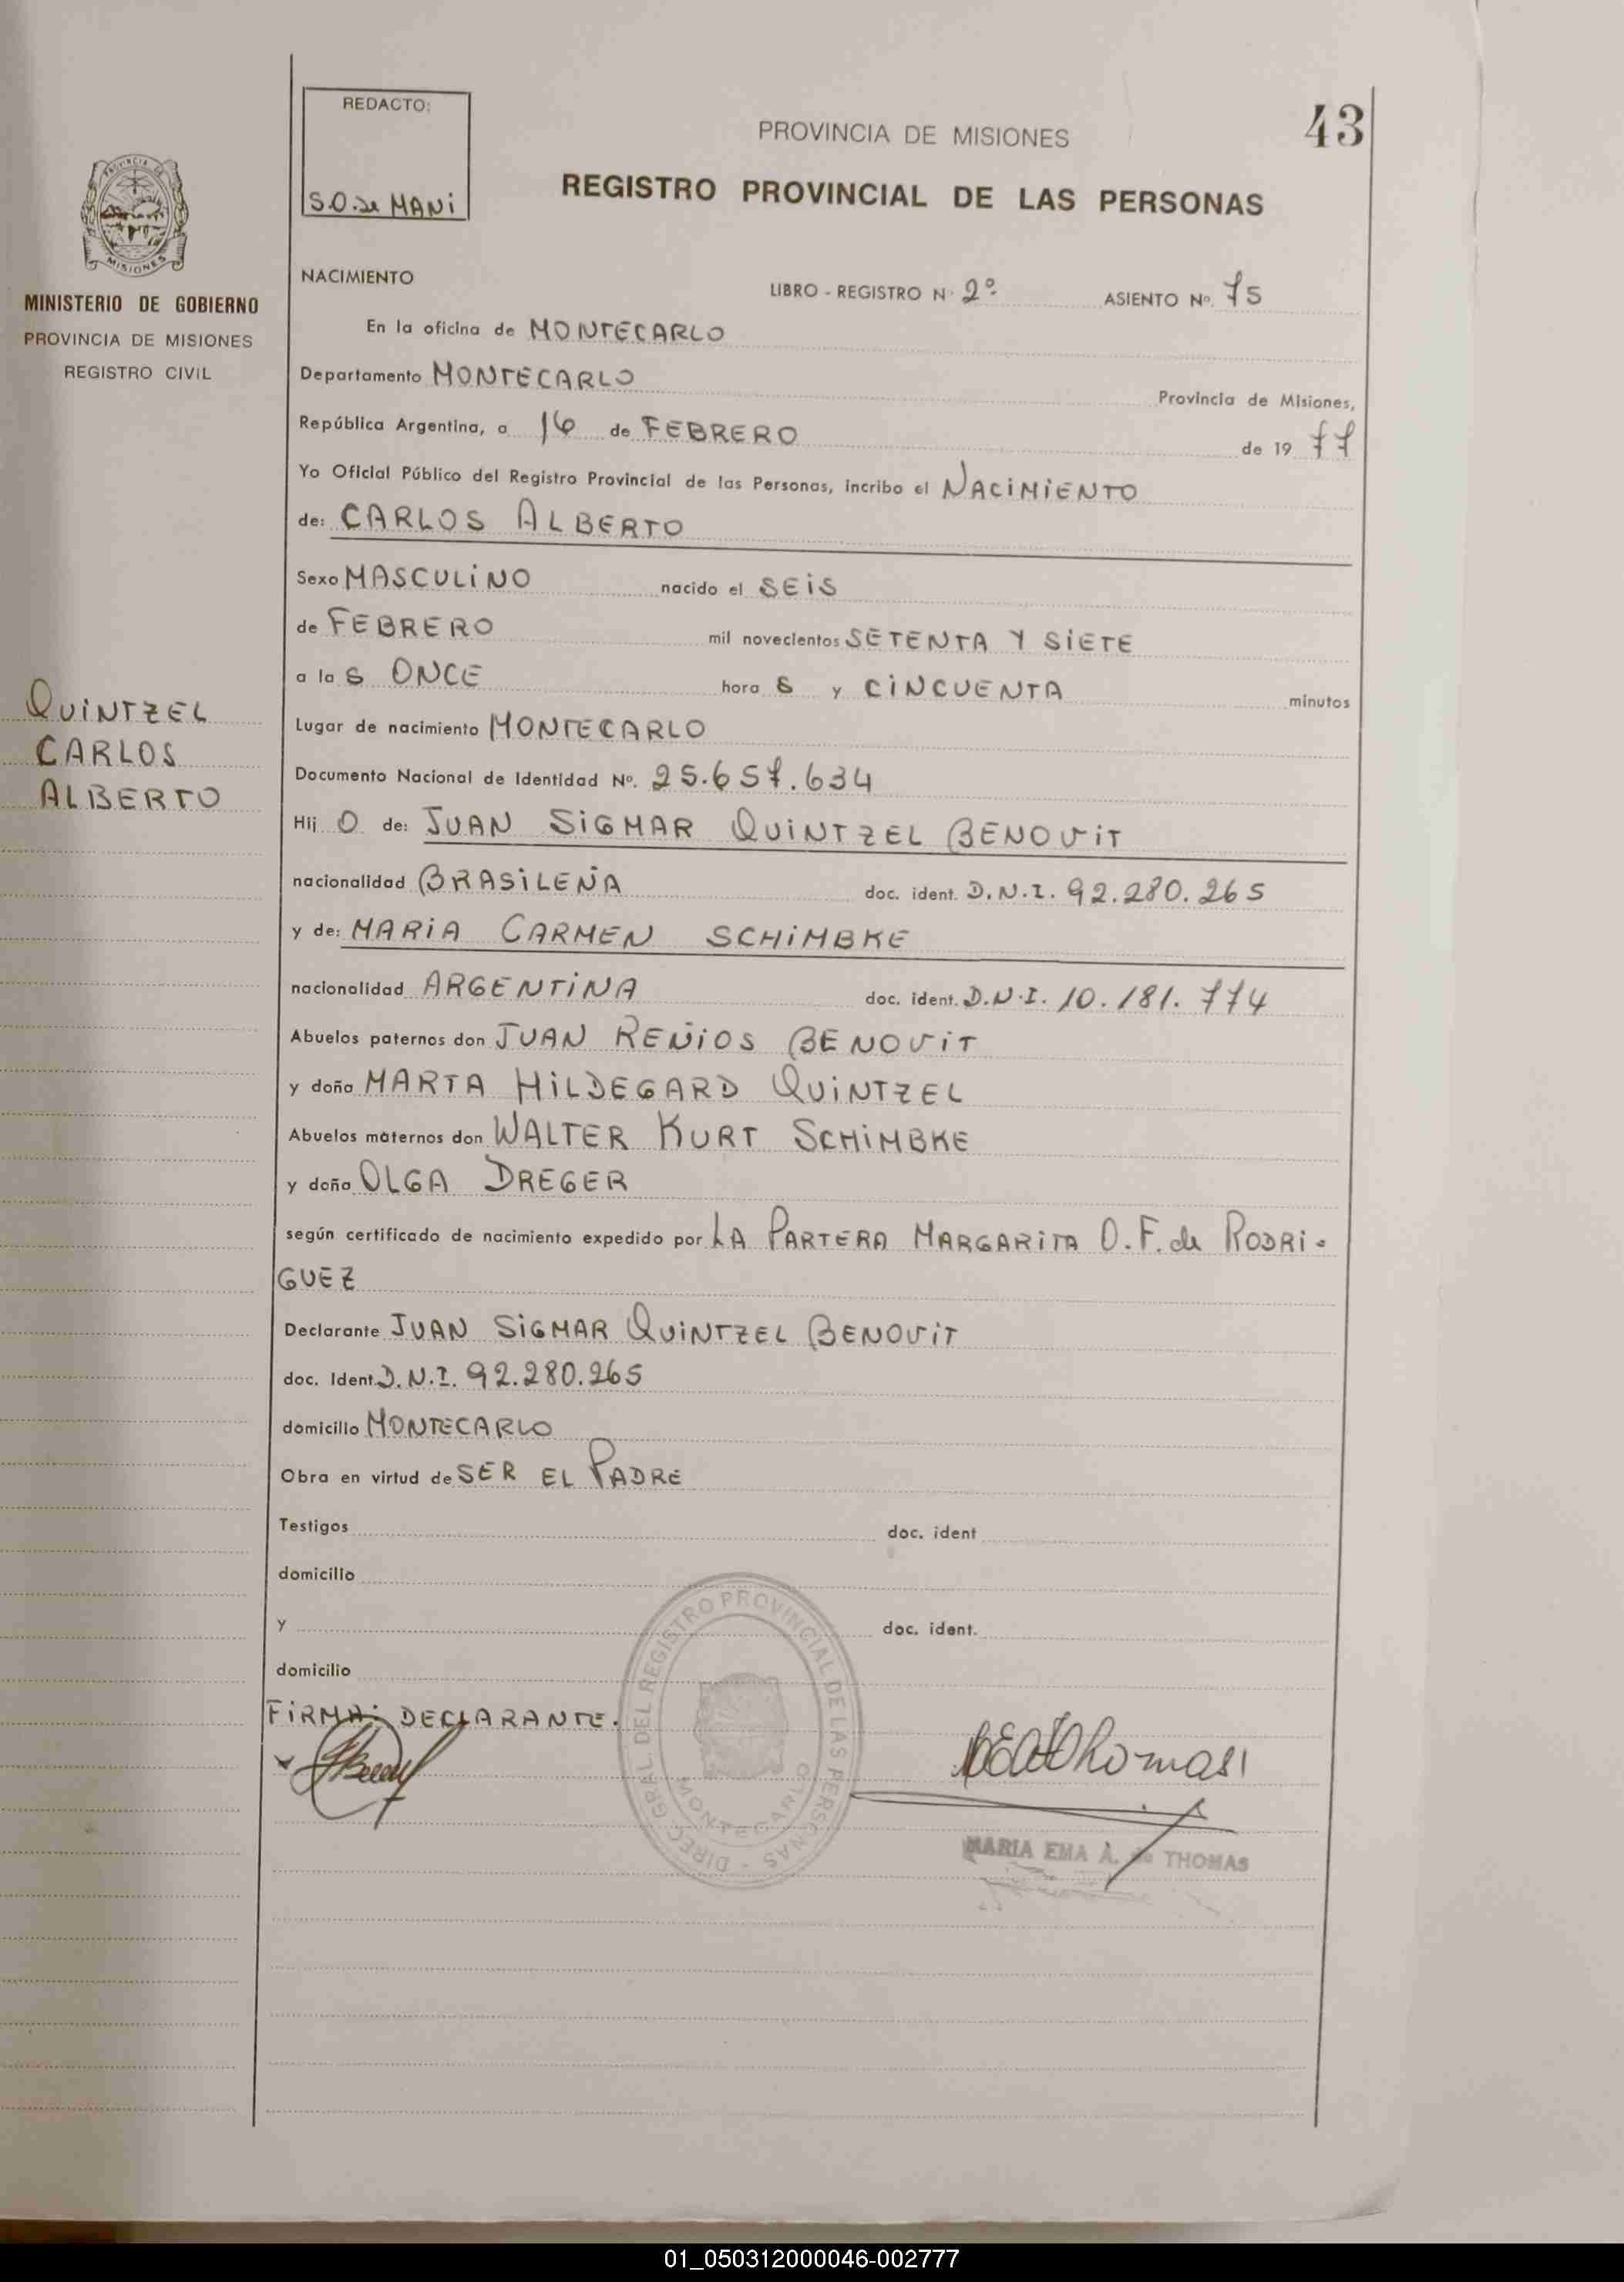 REDACTO:
S.O. de MANi
43
PROVINCIA DE MISIONES
REGISTRO PROVINCIAL DE LAS PERSONAS
MINISTERIO DE GOBIERNO
PROVINCIA DE MISIONES
REGISTRO CIVIL
NACIMIENTO
LIBRO - REGISTRO Nº 2º ASIENTO Nº. 75
En la oficina de MONTECARLO
Departamento MONTECARLO Provincia de Misiones,
República Argentina, a 16 de FEBRERO de 19 77
Yo Oficial Público del Registro Provincial de las Personas, incribo el NACIMIENTO
de: CARLOS ALBERTO
Sexo MASCULINO nacido el SEIS
de FEBRERO mil novecientos SETENTA Y SIETE
a la S ONCE hora S y CINCUENTA minutos
QUINTZEL
CARLOS
ALBERTO
Lugar de nacimiento MONTECARLO
Documento Nacional de Identidad Nº. 25.657.634
Hij O de: JUAN SIGMAR QUINTZEL BENOVIT
nacionalidad BRASILEÑA doc. ident. D.N.I. 92.280.265
y de: MARIA CARMEN SCHIMBKE
nacionalidad ARGENTINA doc. ident. D.N.I. 10.181.774
Abuelos paternos don JUAN REÑIOS BENOVIT
y doña MARTA HILDEGARD QUINTZEL
Abuelos maternos don WALTER KURT SCHIMBKE
y doña OLGA DREGER
según certificado de nacimiento expedido por LA PARTERA MARGARITA O.F. de RODRI-
GUEZ
Declarante JUAN SIGMAR QUINTZEL BENOVIT
doc. Ident. D.N.I. 92.280.265
domicilio MONTECARLO
Obra en virtud de SER EL PADRE
Testigos doc. ident
domicilio
y doc. ident.
domicilio
FIRMA: DECLARANTE.
DIREC. GRAL. DEL REGISTRO PROVINCIAL DE LAS PERSONAS - MONTECARLO
MARIA EMA A. de THOMAS
01_050312000046-002777